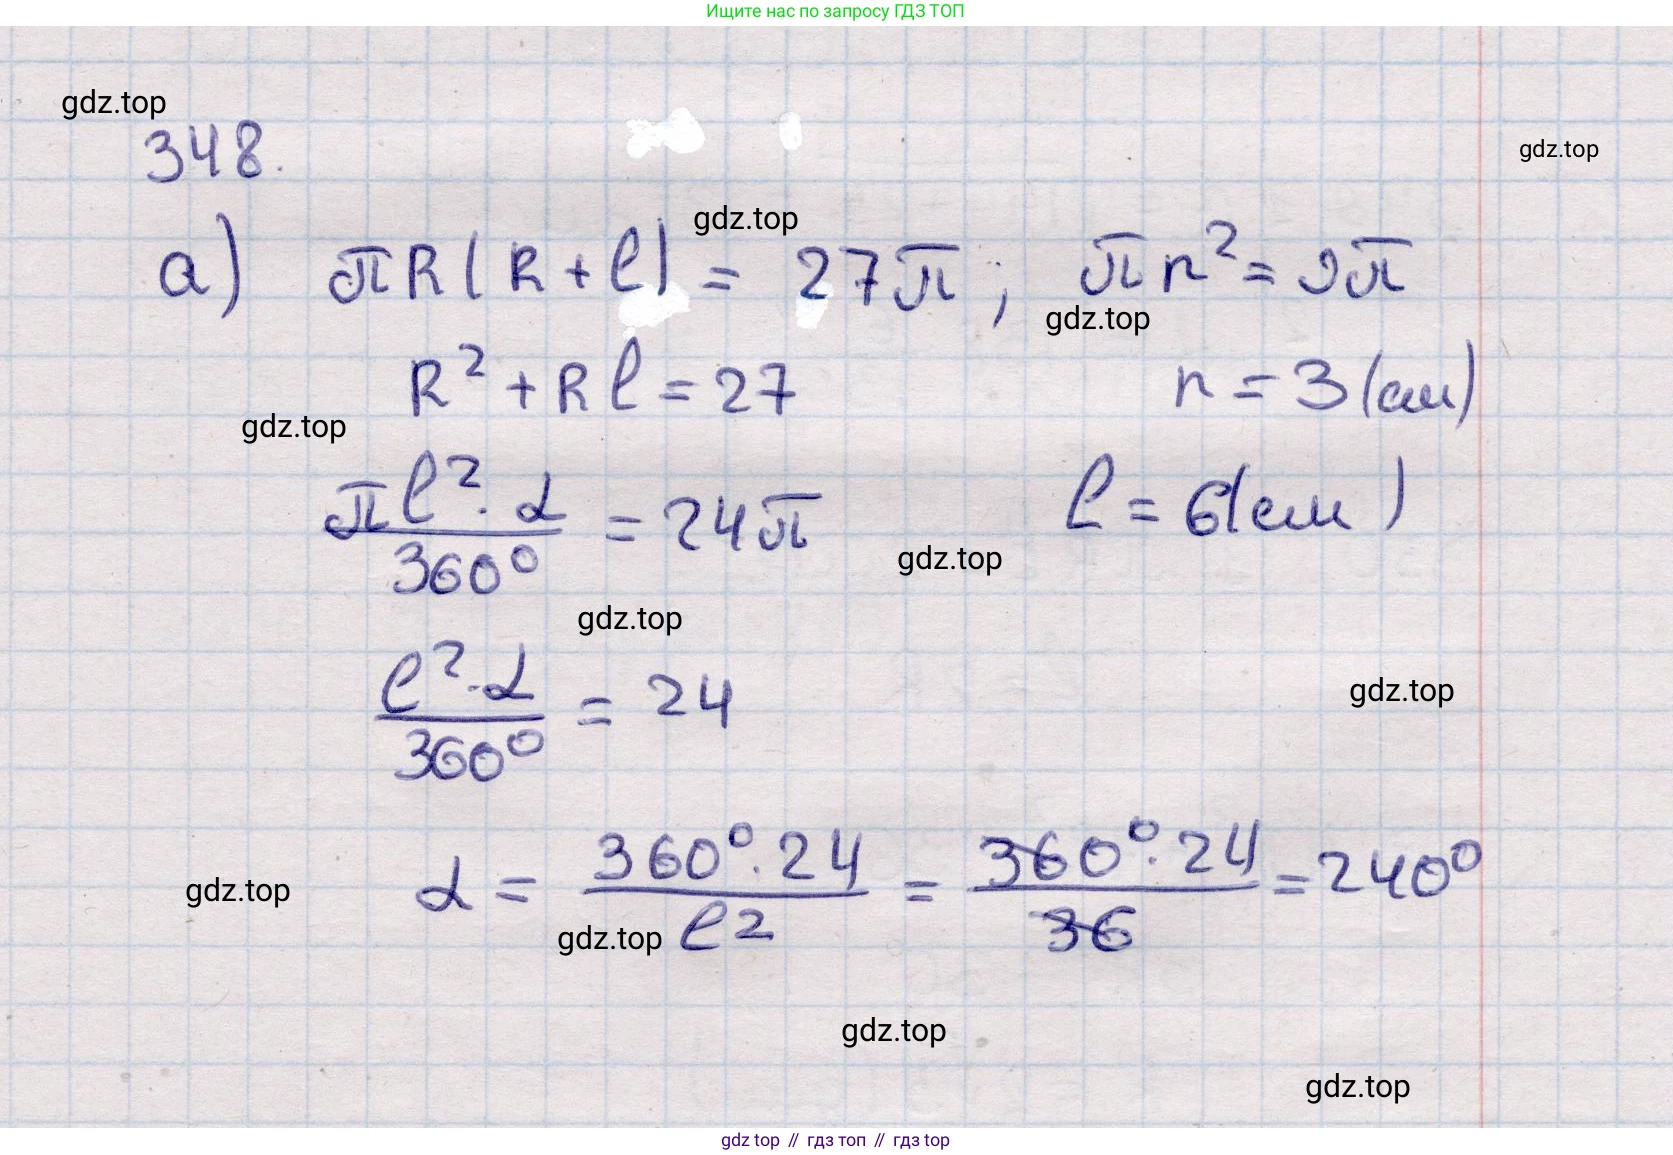 Ищите нас по запросу ГДЗ ТОП
gdz.top
348.
gdz.top
gdz.top
а) πR(R+l) = 27π; πr² = 9π
gdz.top
R² + Rl = 27 r = 3 (см)
gdz.top
πl²·α / 360° = 24π l = 6 (см)
gdz.top
gdz.top
l²·α / 360° = 24
gdz.top
α = 360°·24 / l² = 360°·24 / 36 = 240°
gdz.top
gdz.top
gdz.top
gdz.top
gdz top // гдз топ // гдз top